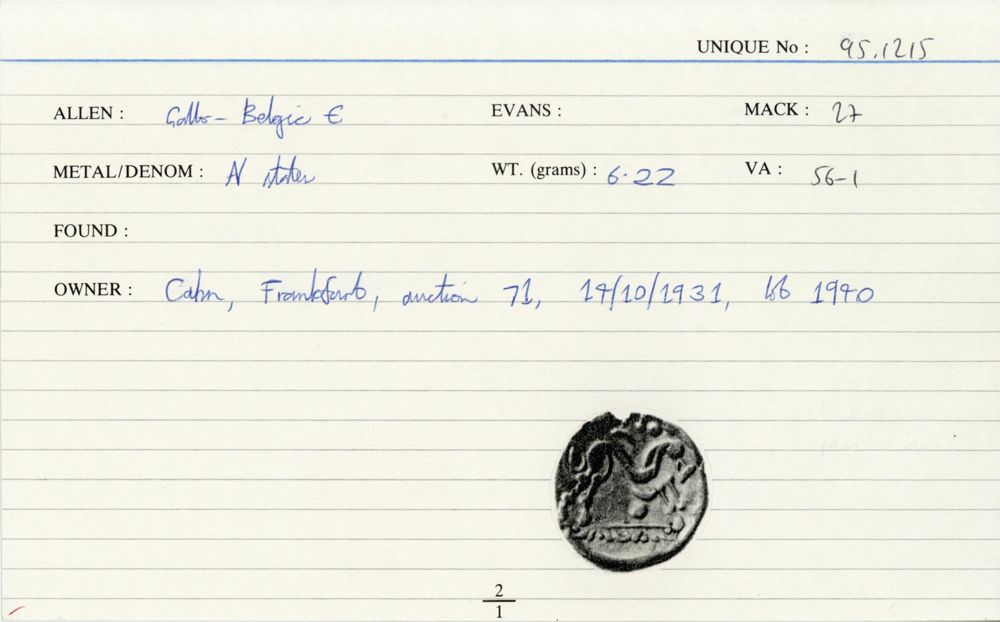 UNIQUE No : 95.1215
ALLEN : Gallo-Belgic E EVANS : MACK : 27
METAL/DENOM : N stater WT. (grams) : 6.22 VA : 56-1
FOUND :
OWNER : Cahn, Frankfurt, auction 71, 14/10/1931, lot 1940
2
1